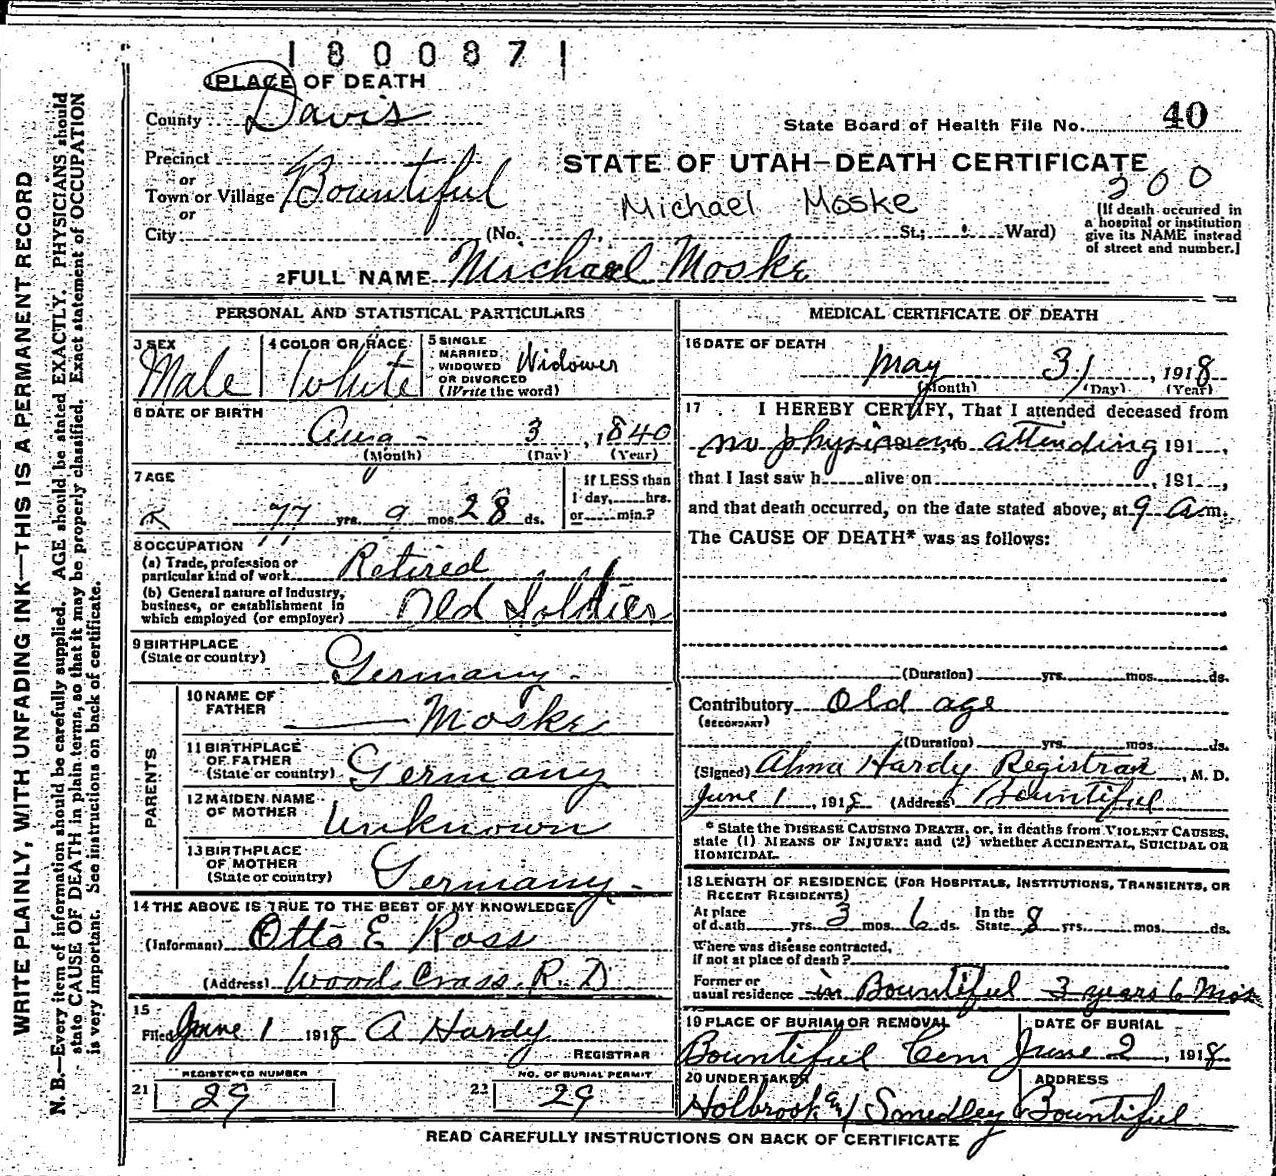 180087
1 PLACE OF DEATH
County Davis
State Board of Health File No. 40
Precinct
or
Town or Village Bountiful
or
City (No. St.; Ward)
STATE OF UTAH—DEATH CERTIFICATE
200
Michael Moske
[If death occurred in
a hospital or institution
give its NAME instead
of street and number.]
2 FULL NAME Michael Moske
PERSONAL AND STATISTICAL PARTICULARS
3 SEX
Male
4 COLOR OR RACE
White
5 SINGLE
MARRIED
WIDOWED
OR DIVORCED
(Write the word)
Widower
6 DATE OF BIRTH
Aug - 3, 1840
(Month) (Day) (Year)
7 AGE
77 yrs. 9 mos. 28 ds.
If LESS than
1 day, hrs.
or min.?
8 OCCUPATION
(a) Trade, profession or
particular kind of work Retired
(b) General nature of industry,
business, or establishment in
which employed (or employer) Old Soldier
9 BIRTHPLACE
(State or country) Germany
PARENTS
10 NAME OF
FATHER — Moske
11 BIRTHPLACE
OF FATHER
(State or country) Germany
12 MAIDEN NAME
OF MOTHER Unknown
13 BIRTHPLACE
OF MOTHER
(State or country) Germany
14 THE ABOVE IS TRUE TO THE BEST OF MY KNOWLEDGE
(Informant) Otto E Ross
(Address) Woods Cross R. D
15
Filed June 1 1918 A Hardy
REGISTRAR
REGISTERED NUMBER
21 29
NO. OF BURIAL PERMIT
22 29
MEDICAL CERTIFICATE OF DEATH
16 DATE OF DEATH
May 31, 1918
(Month) (Day) (Year)
17 I HEREBY CERTIFY, That I attended deceased from
no physician attending 191
that I last saw h alive on , 191 ,
and that death occurred, on the date stated above, at 9 A m.
The CAUSE OF DEATH* was as follows:
(Duration) yrs. mos. ds.
Contributory Old age
(SECONDARY)
(Duration) yrs. mos. ds.
(Signed) Alma Hardy Registrar, M. D.
June 1, 1918 (Address) Bountiful
* State the DISEASE CAUSING DEATH, or, in deaths from VIOLENT CAUSES,
state (1) MEANS OF INJURY; and (2) whether ACCIDENTAL, SUICIDAL OR
HOMICIDAL.
18 LENGTH OF RESIDENCE (FOR HOSPITALS, INSTITUTIONS, TRANSIENTS, OR
RECENT RESIDENTS)
At place
of death yrs. 3 mos. 6 ds. In the
State 8 yrs. mos. ds.
Where was disease contracted,
if not at place of death?
Former or
usual residence in Bountiful 3 years 6 Mos
19 PLACE OF BURIAL OR REMOVAL
Bountiful Cem
DATE OF BURIAL
June 2, 1918
20 UNDERTAKER
Holbrook and Smedley
ADDRESS
Bountiful
READ CAREFULLY INSTRUCTIONS ON BACK OF CERTIFICATE
WRITE PLAINLY, WITH UNFADING INK—THIS IS A PERMANENT RECORD
N. B.—Every item of information should be carefully supplied. AGE should be stated EXACTLY. PHYSICIANS should
state CAUSE OF DEATH in plain terms, so that it may be properly classified. Exact statement of OCCUPATION
is very important. See instructions on back of certificate.